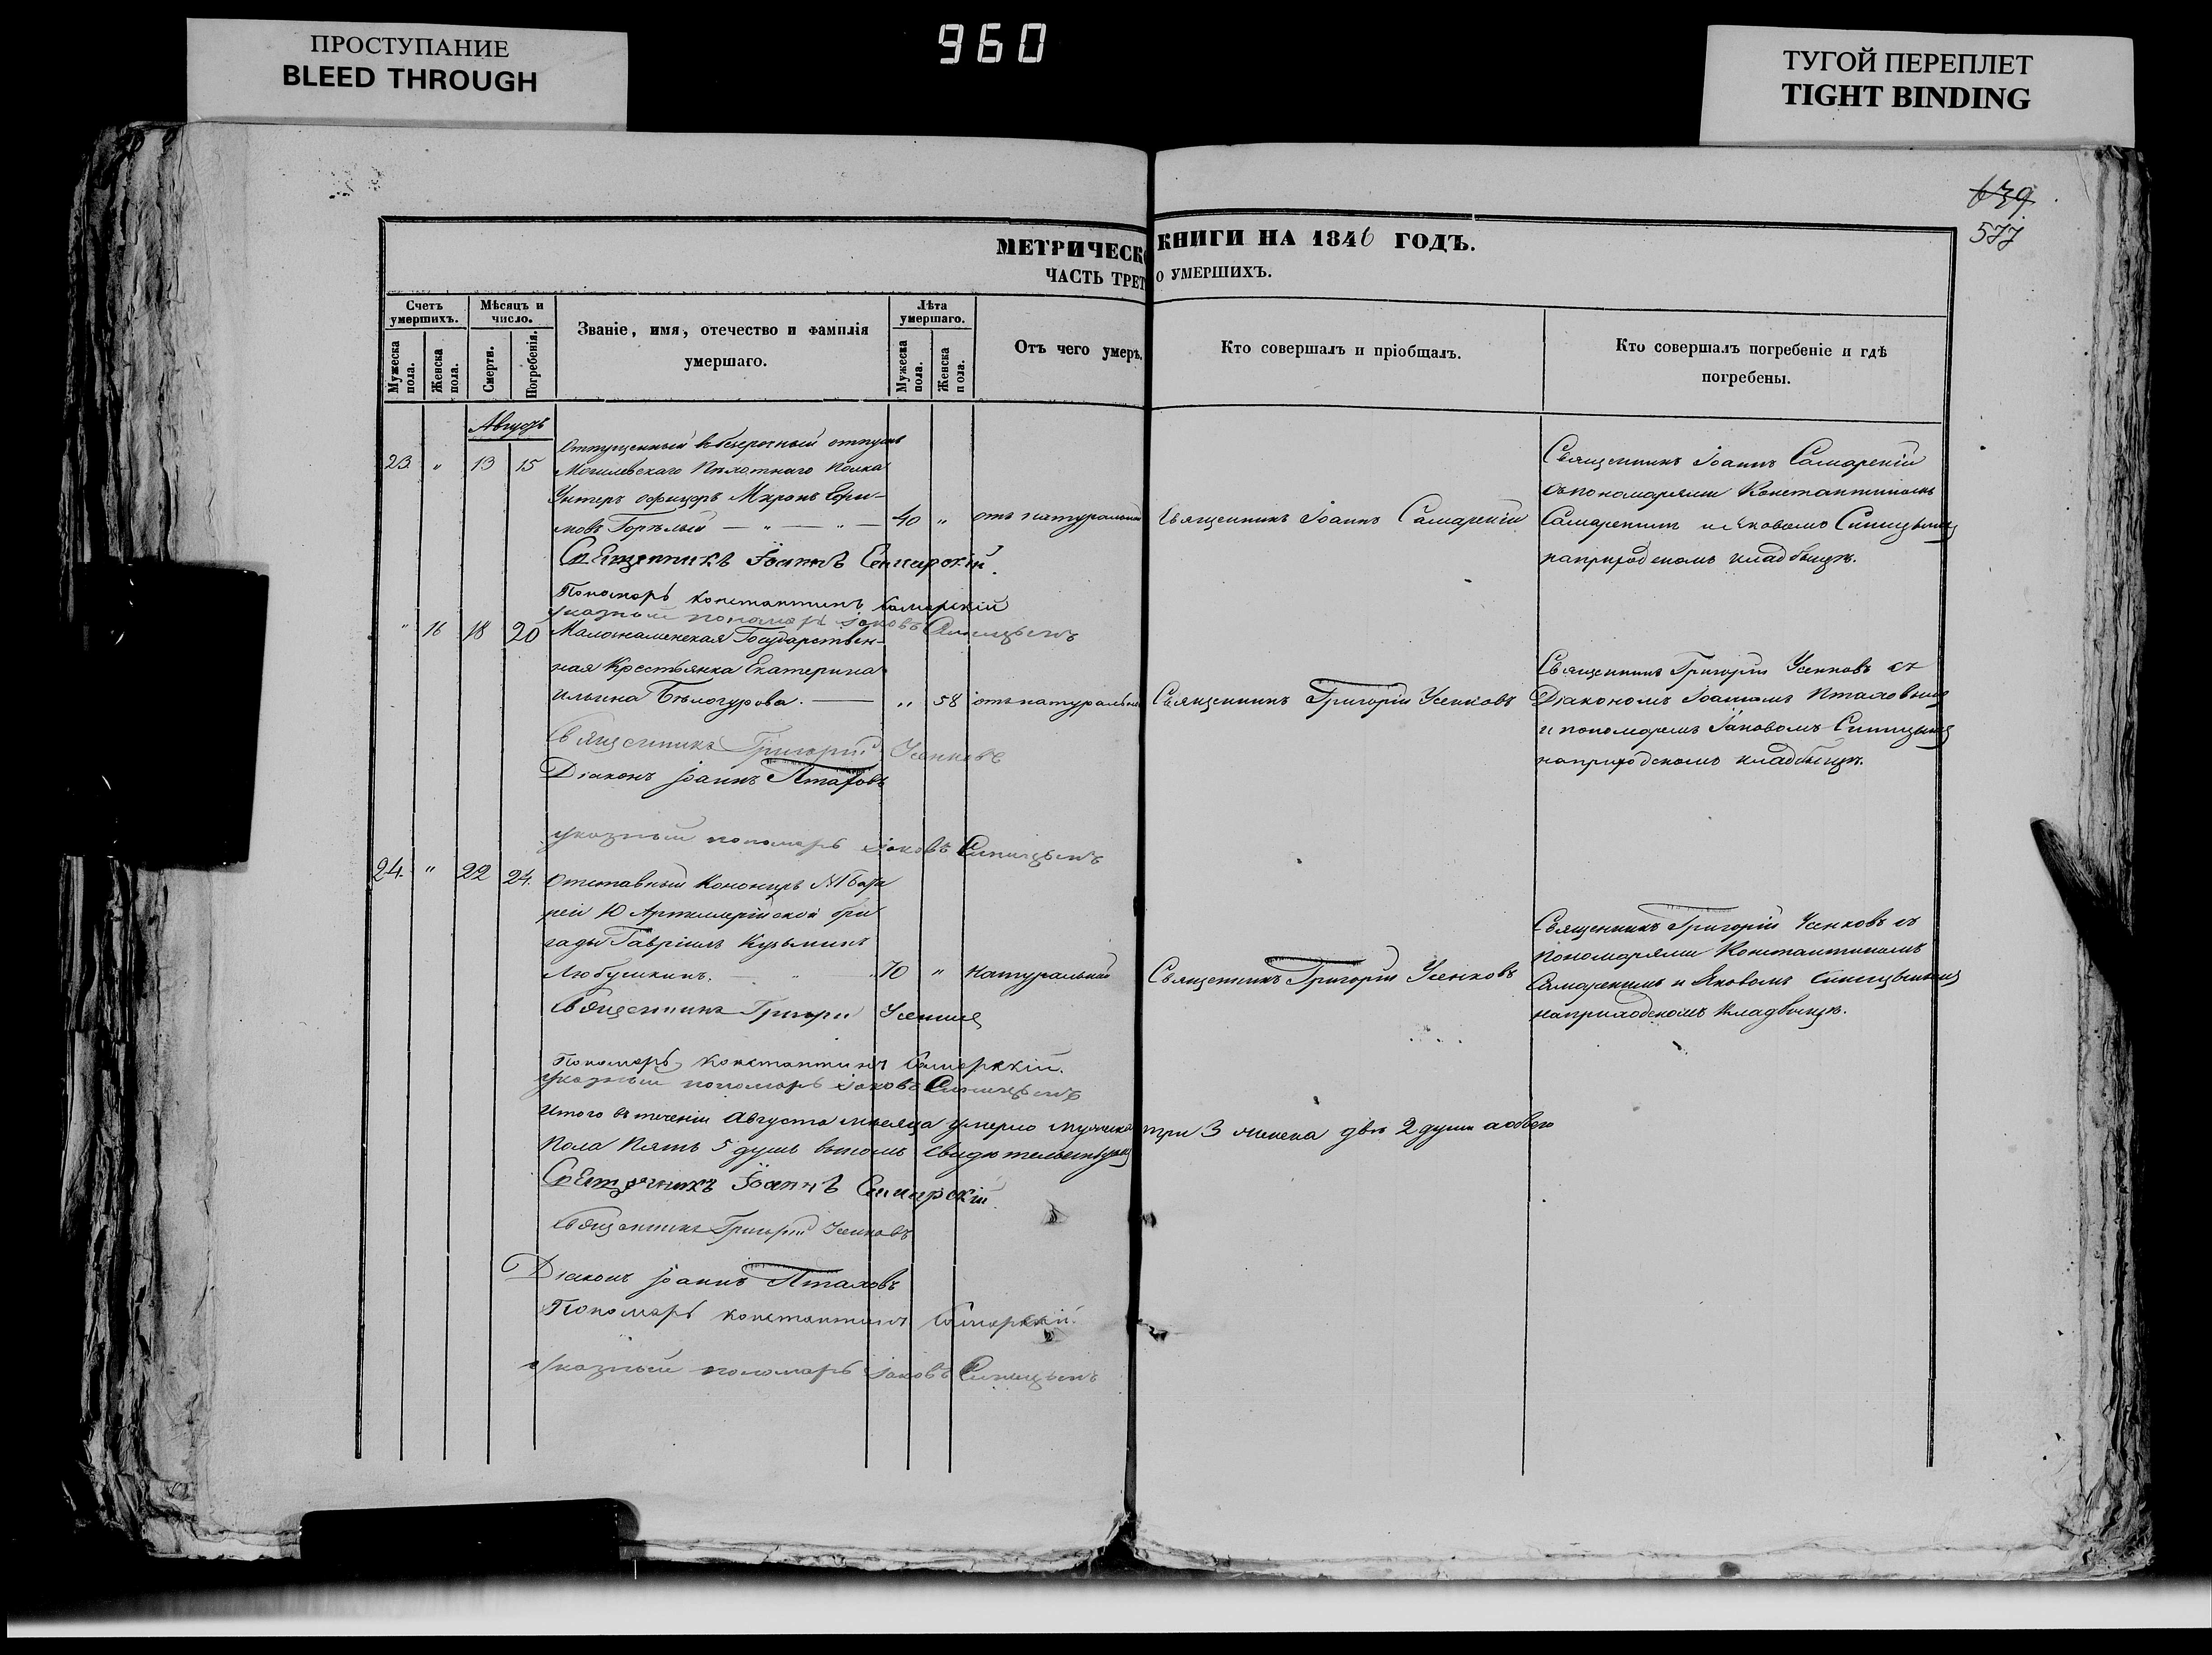 ПРОСТУПАНИЕ
BLEED THROUGH
960
ТУГОЙ ПЕРЕПЛЕТ
TIGHT BINDING
639
577
МЕТРИЧЕСК КНИГИ НА 1846 ГОДЪ.
ЧАСТЬ ТРЕТ О УМЕРШИХЪ.
Счетъ умершихъ.
Мужеска пола.
Женска пола.
Мѣсяцъ и число.
Смерти.
Погребенія.
Званіе, имя, отечество и фамилія
умершаго.
Лѣта умершаго.
Мужеска пола.
Женска пола.
Отъ чего умеръ.
Кто совершалъ и пріобщалъ.
Кто совершалъ погребеніе и гдѣ
погребены.
Августъ
23 " 13 15
Отпущенный въ безсрочный отпускъ
Могилевскаго Пѣхотнаго Полка
Унтеръ офицеръ Миронъ
Горѣлый — " — " — 40 " отъ натуральной
Священникъ Іоаннъ Самарскій
Священникъ Іоаннъ Самарскій
съ пономарями Константиномъ
Самарскимъ и Яковомъ Синицынымъ
на приходскомъ кладбищѣ.
Священникъ Іоаннъ Самарскій.
Пономарь Константинъ Самарскій
указный пономарь Іаковъ Синицынъ
" 16 18 20
Государствен-
ная Крестьянка Екатерина
Ильина Бѣлогурова. — " 58 отъ натуральной
Священникъ Григорій Усенковъ
Священникъ Григорій Усенковъ съ
Діакономъ Іоанномъ Птаховымъ
и пономаремъ Іаковомъ Синицынымъ
на приходскомъ кладбищѣ.
Священникъ Григорій Усенковъ
Діаконъ Іоаннъ Птаховъ
указный пономарь Іаковъ Синицынъ
24. " 22 24.
Отставный Канониръ №1 бата
реи 10 Артиллерійской бри
гады Гавріилъ Кузьминъ
Любушкинъ. 70 " натуральной
Священникъ Григорій Усенковъ
Священникъ Григорій Усенковъ съ
пономарями Константиномъ
Самарскимъ и Яковомъ Синицынымъ
на приходскомъ кладбищѣ.
Священникъ Григорій
Пономарь Константинъ Самарскій.
указный пономарь Іаковъ Синицынъ
Итого въ теченіи Августа мѣсяца умерло мужеска три 3 женска двѣ 2 души а обоего
пола пять 5 душъ въ томъ свидѣтельствуемъ
Священникъ Іоаннъ Самарскій.
Священникъ Григорій Усенковъ
Діаконъ Іоаннъ Птаховъ
Пономарь Константинъ Самарскій.
указный пономарь Іаковъ Синицынъ